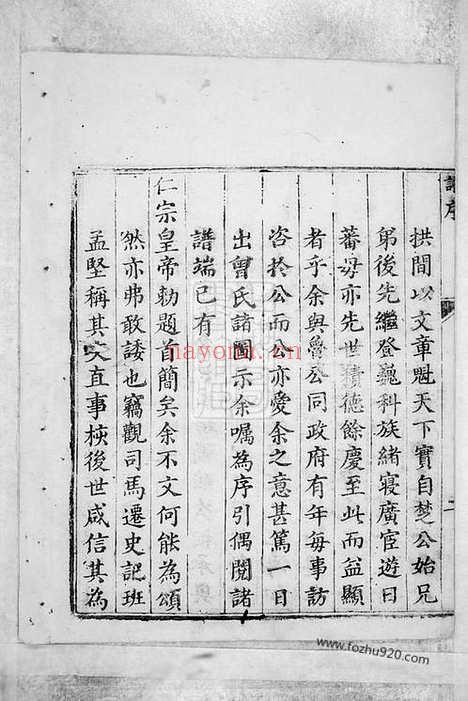 譜序
拱間以文章魁天下實自楚公始兄
弟後先繼登巍科族緒寖廣宦遊日
蕃毋亦先世積德餘慶至此而益顯
者乎余與魯公同政府有年每事訪
咨於公而公亦愛余之意甚篤一日
出曾氏諸圖示余囑為序引偶閱諸
譜端已有
仁宗皇帝勅題首簡矣余不文何能為頌
然亦弗敢諉也竊觀司馬遷史記班
孟堅稱其文直事核後世咸信其為
二
nayona.cn
www.fozhu920.com